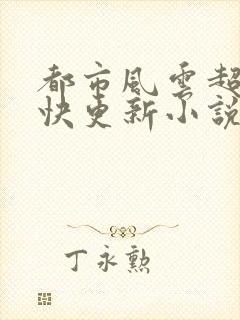 都市風雲超
快更新小說
丁永勲